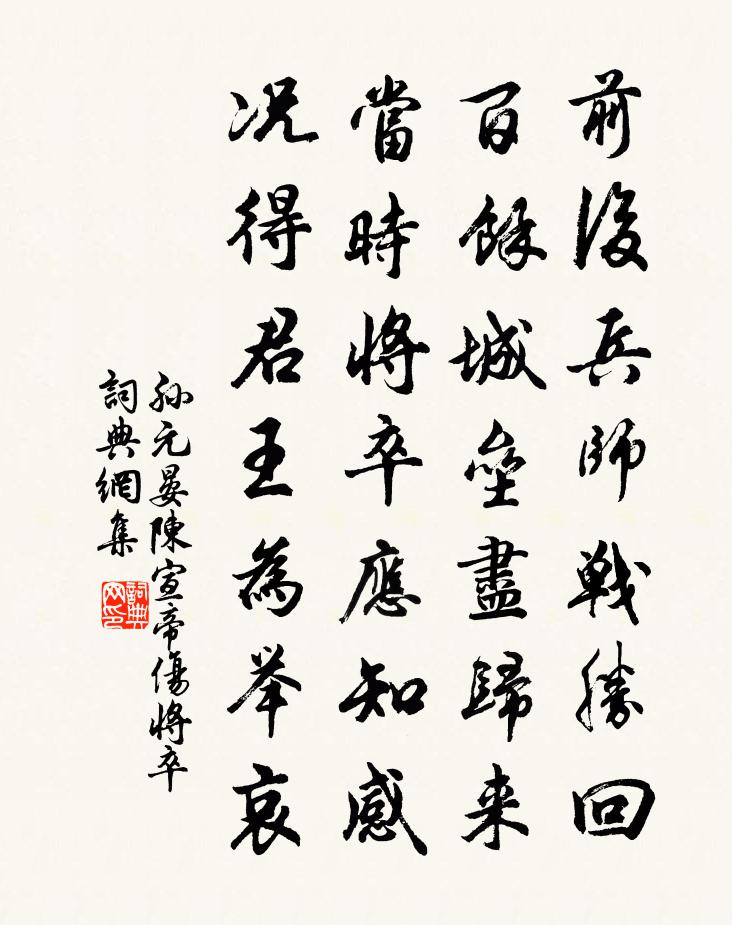 前後兵師戰勝回
百餘城壘盡歸来
當時將卒應知感
况得君王為举哀
孙元晏陳宣帝傷將卒
詞典網集
詞典网印